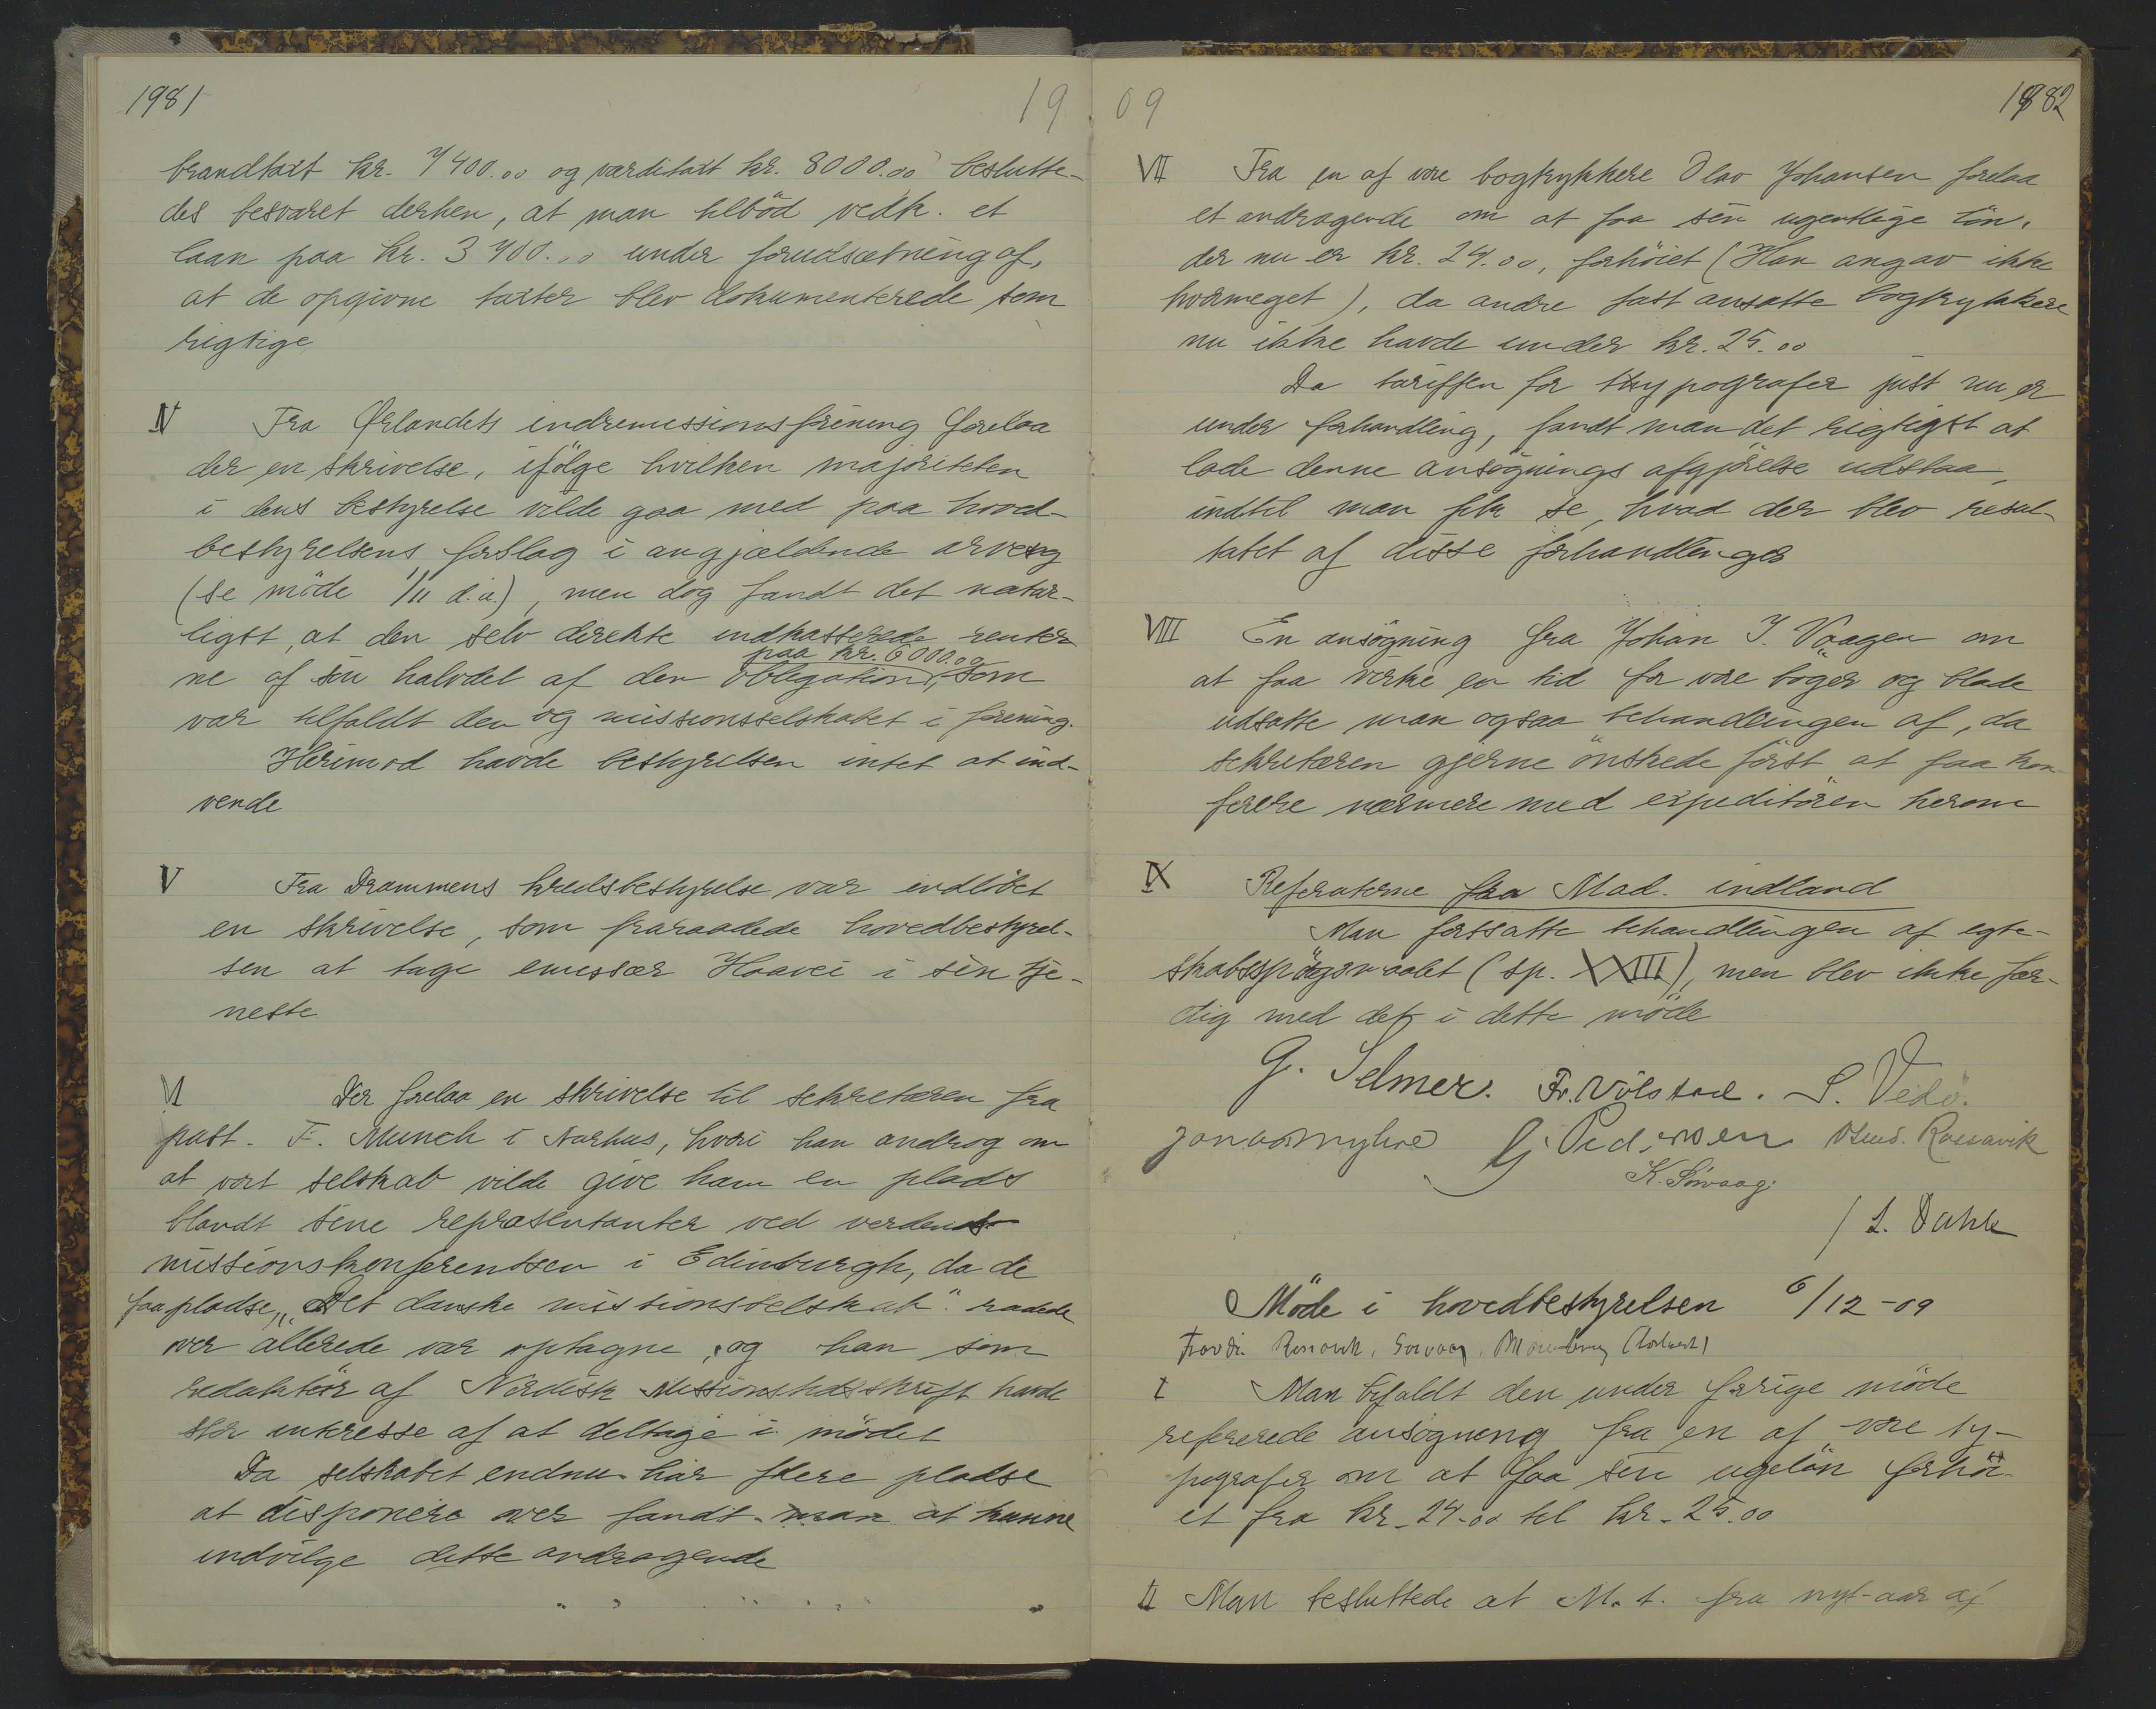 1981
19
brandtaxt kr. 7400.00 og værditaxt kr. 8000.00 beslutte-
des besvaret derhen, at man tilböd vedk. et
laan paa kr. 3700.00 under forudsætning af,
at de opgivne taxter blev dokumenterede som
rigtige
IV Fra Ørlandets indremissionsforening forelaa
der en skrivelse, ifölge hvilken majoriteten
i dens bestyrelse vilde gaa med paa hoved-
bestyrelsens forslag i angjældende arvesag
(se möde 1/11 d.a.), men dog fandt det natur-
ligst, at den selv direkte indkasserede renter
paa kr. 6000.00
ne af sin halvdel af den obligation, som
var tilfaldt den og missionsselskabet i forening.
Herimod havde bestyrelsen intet at ind-
vende
V Fra Drammens kredsbestyrelse var indlöbet
en skrivelse, som fraraadede hovedbestyrel-
sen at tage emissær Haavei i sin tje-
neste
VI Der forelaa en skrivelse til sekretæren fra
past. F. Munch i Aarhus, hvori han androg om
at vort selskab vilde give ham en plads
blandt sine repræsentanter ved verdens
missionskonferentsen i Edinburgh, da de
faa pladse, "Det danske missionsselskab" raadede
over allerede var optagne, og han som
redaktör af Nordisk Missionstidsskrift havde
stor interesse af at deltage i mödet
Da selskabet endnu har flere pladse
at disponere over fandt man at kunne
indvilge dette andragende
09
1982
VII Fra en af vore bogtrykkere Olav Johansen forelaa
et andragende om at faa sin ugentlige lön,
der nu er kr. 24.00, forhöiet (Han angav ikke
hvormeget), da andre fast ansatte bogtrykkere
nu ikke havde under kr. 25.00
Da tariffen for typografer just nu er
under forhandling, fandt man det rigtigst at
lade denne ansögnings afgjörelse udstaa,
indtil man fik se, hvad der blev resul-
tatet af disse forhandlinger
VIII En ansögning fra Johan J. Vaagen om
at faa virke en tid for vore böger og blade
udsatte man ogsaa behandlingen af, da
sekretæren gjerne önskede först at faa kon-
ferere nærmere med expeditören herom
IX Referaterne fra Mad. indland
Man fortsatte behandlingen af egte-
skabsspörgsmaalet (sp. XXIII), men blev ikke fær-
dig med det i dette möde
G. Selmer. Fr. Völstad. S. Vedö.
Jonas Myhre G. Pedersen Rossavik
K. Sörvaag.
/ L. Dahle
Möde i hovedbestyrelsen 6/12-09
Rossavik, Sörvaag,
I Man bifaldt den under forrige möde
refererede ansögning fra en af vore ty-
pografer om at faa sin ugelön forhöi-
et fra kr. 24.00 til kr. 25.00
II Man besluttede at M.t. fra nyt-aar af